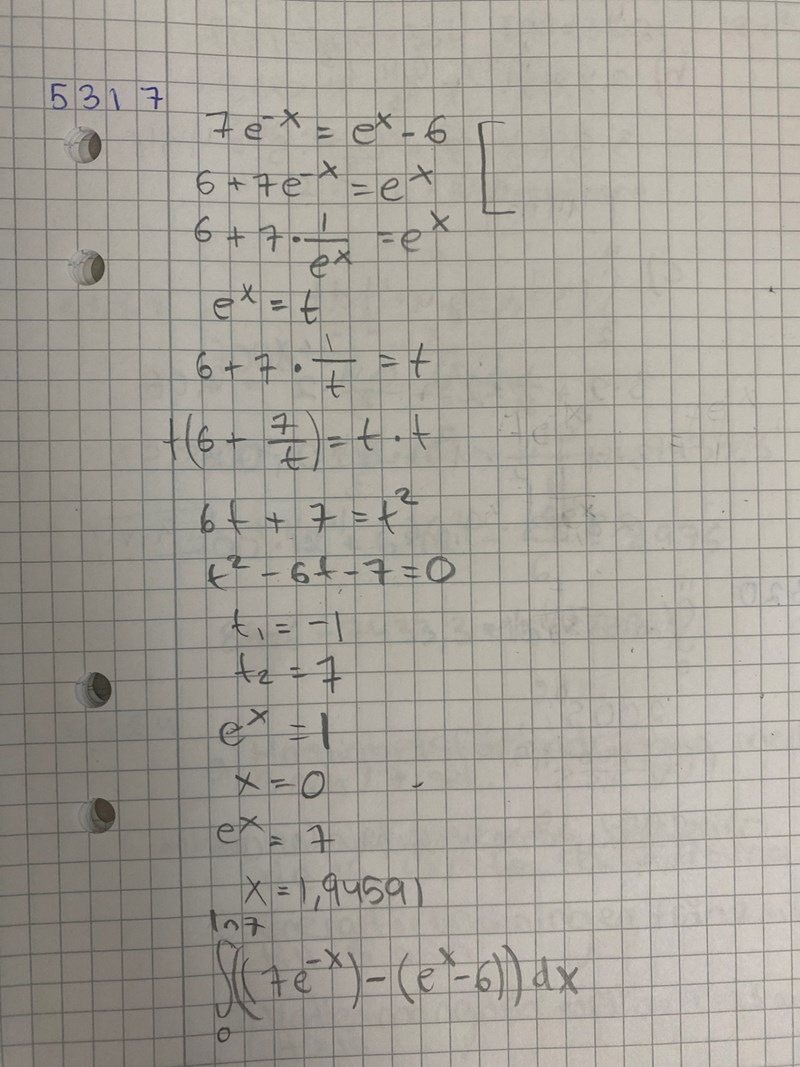 5317
7e^{-x} = e^x - 6 [
6 + 7e^{-x} = e^x
6 + 7 · \frac{1}{e^x} = e^x
e^x = t
6 + 7 · \frac{1}{t} = t
t(6 + \frac{7}{t}) = t · t
6t + 7 = t^2
t^2 - 6t - 7 = 0
t_1 = -1
t_2 = 7
e^x = 1
x = 0
e^x = 7
x = 1,94591
\int_0^{ln7} ((7e^{-x}) - (e^x - 6)) dx